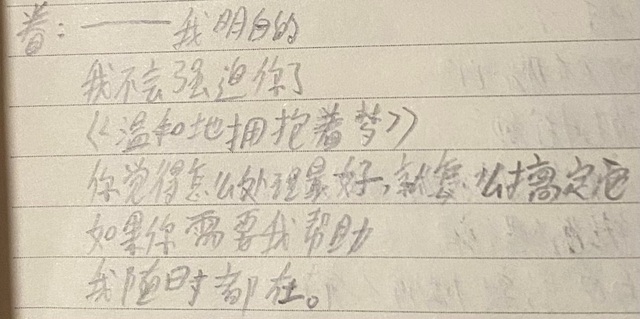 眷：——我明白的
我不会强迫你了
《温和地拥抱着梦》
你觉得怎么处理最好，就怎么搞定它
如果你需要我帮助
我随时都在。